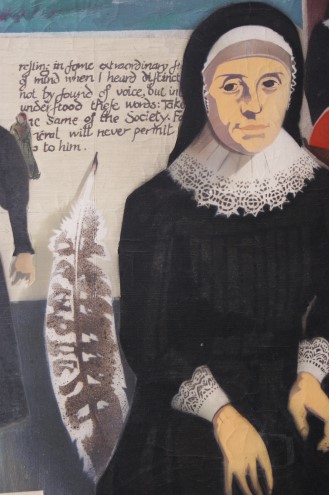 reſting in ſome extraordinary st
of mind when I heard distinct
not by ſound of voice, but in
underſtood theſe words: Take
he same of the Society. F
neral will never permit
o to him.